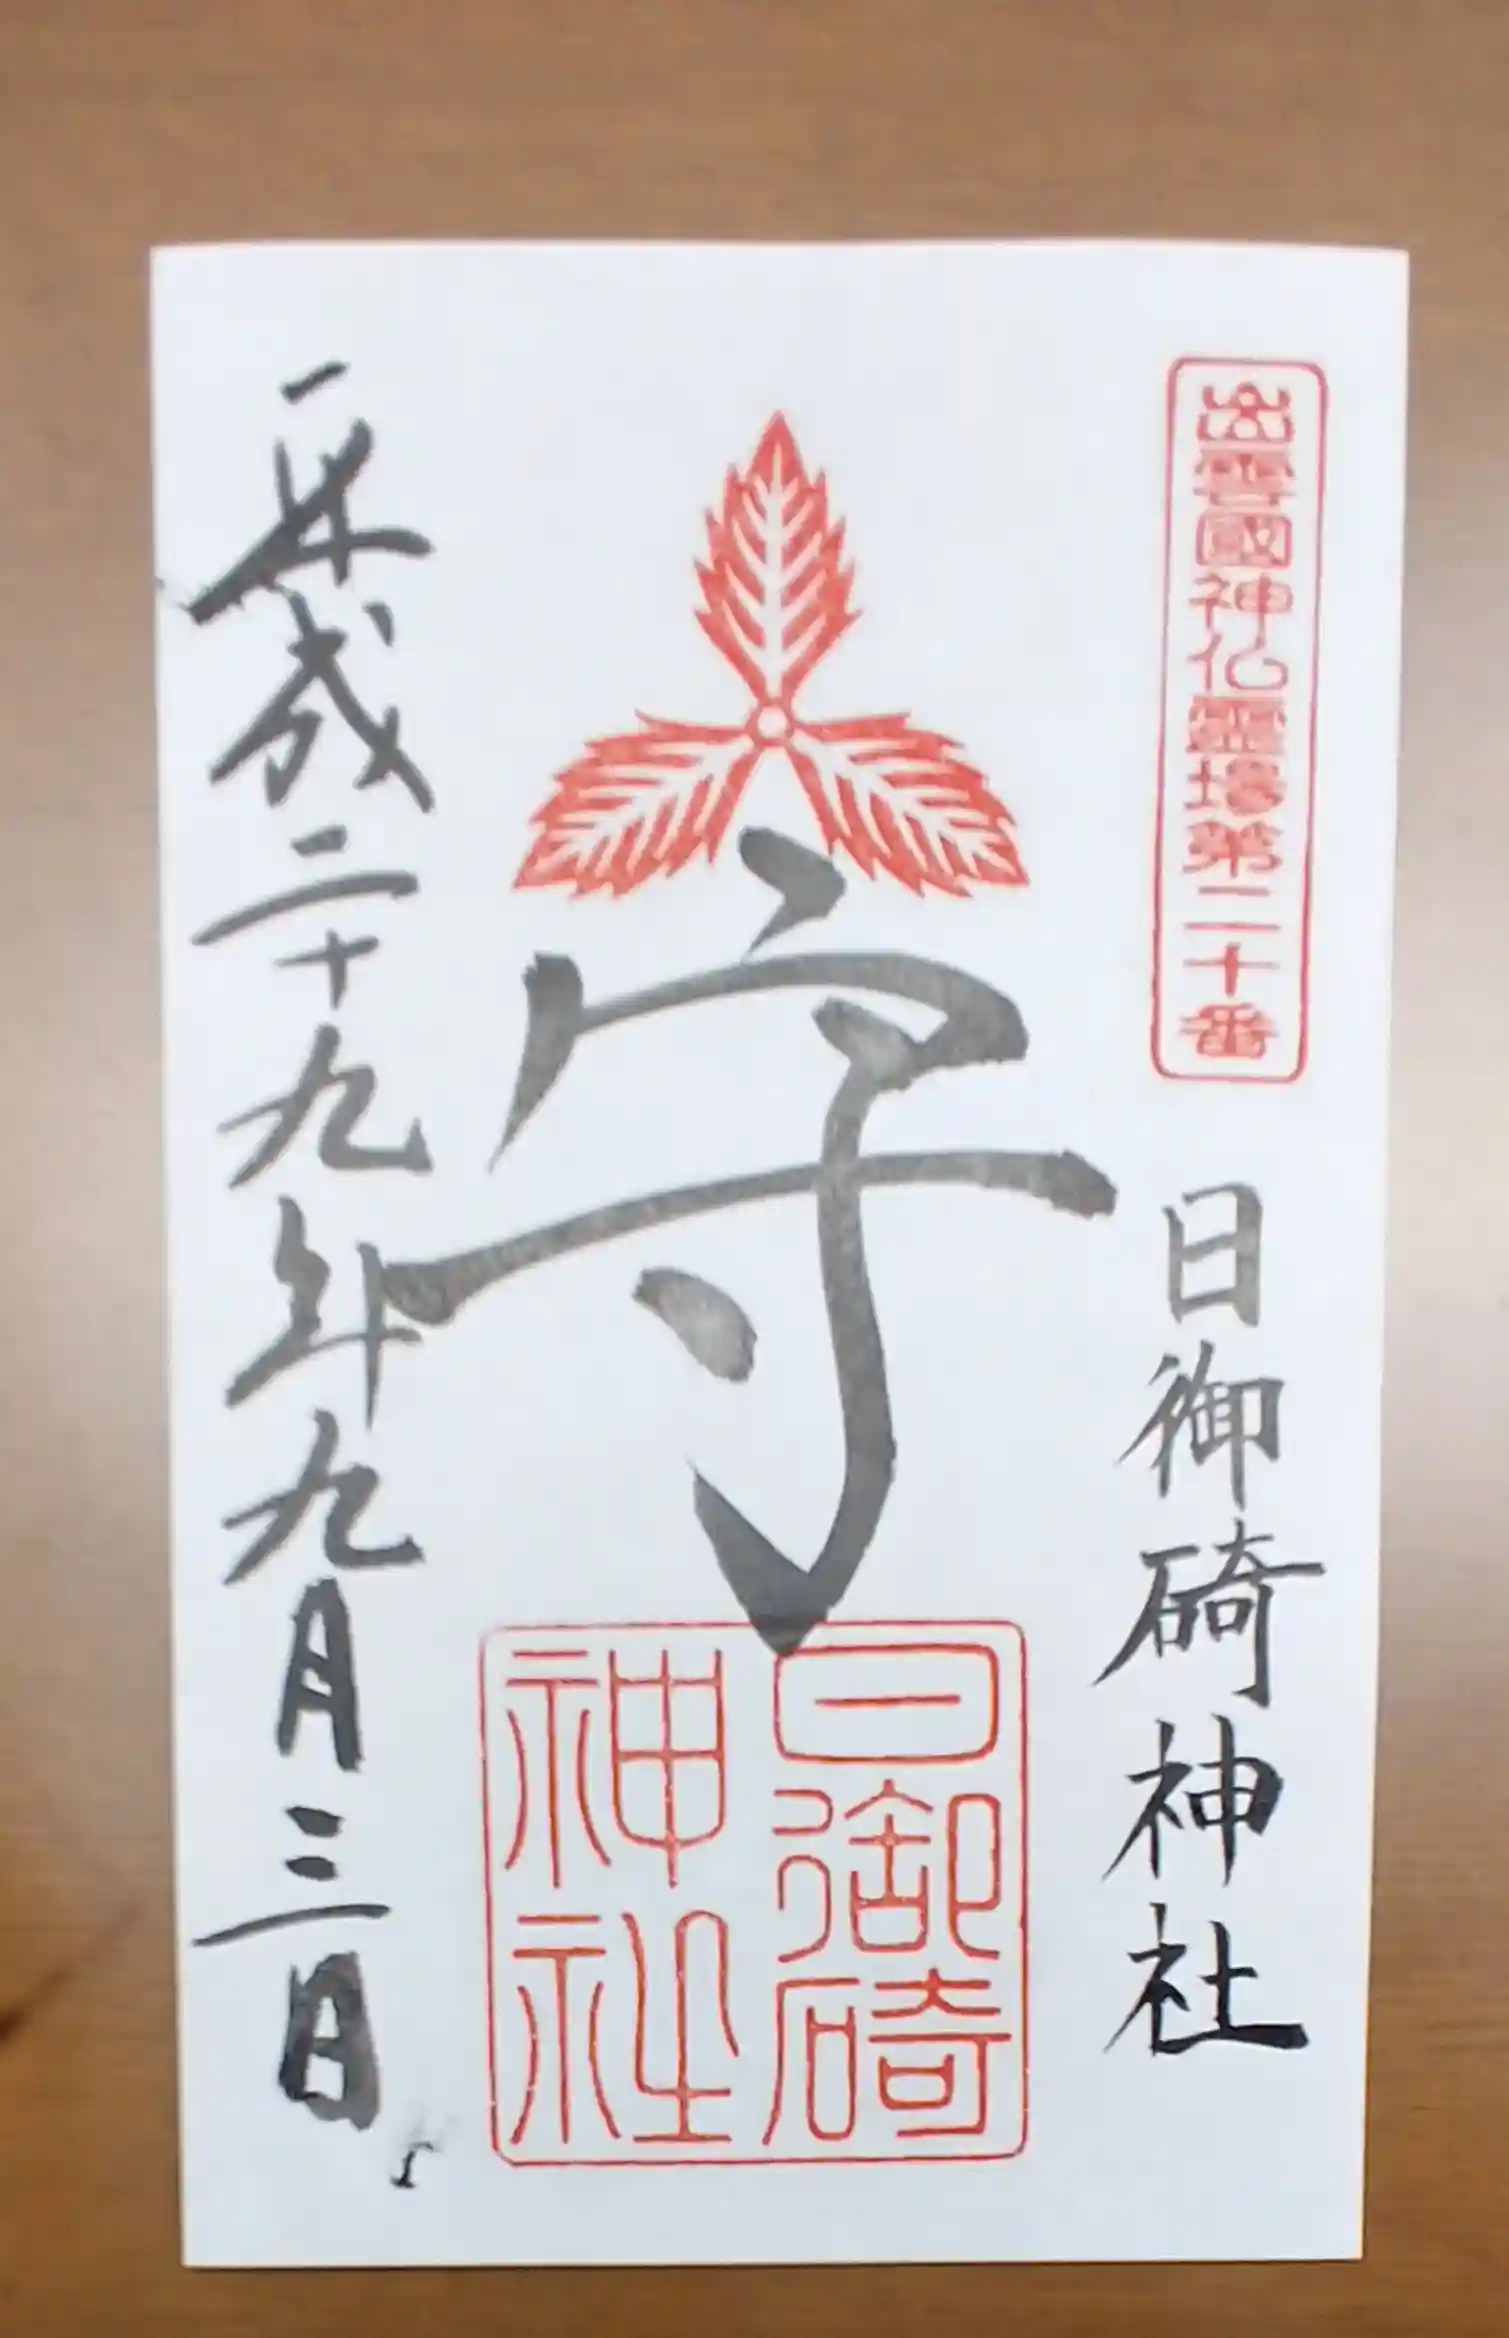 出雲國神仏霊場第二十番
日御碕神社
守
日御碕
神社
平成二十九年九月三日